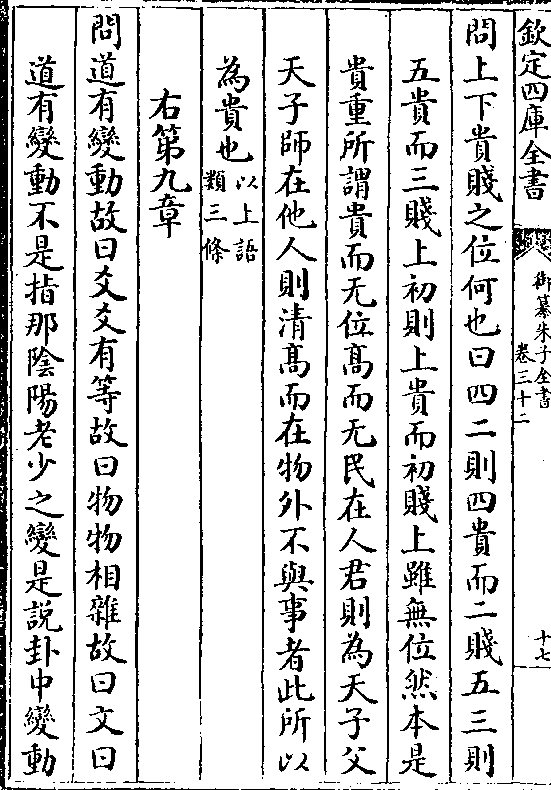 欽定四庫全書
御纂朱子全書
卷三十二
十七
問上下貴賤之位何也曰四二則四貴而二賤五三則
五貴而三賤上初則上貴而初賤上雖無位然本是
貴重所謂貴而无位髙而无民在人君則為天子父
天子師在他人則清髙而在物外不與事者此所以
為貴也以上語
類三條
右第九章
問道有變動故曰爻爻有等故曰物物相雜故曰文曰
道有變動不是指那陰陽老少之變是説卦中變動